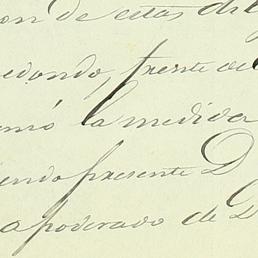 on de estas dil
edondo, frente al
amó la medida
iendo presente D
apoderado de D